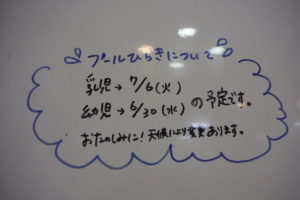 プールひらきについて
乳児→7/6(火)
幼児→6/30(水)の予定です。
おたのしみに!天候により変更あります。